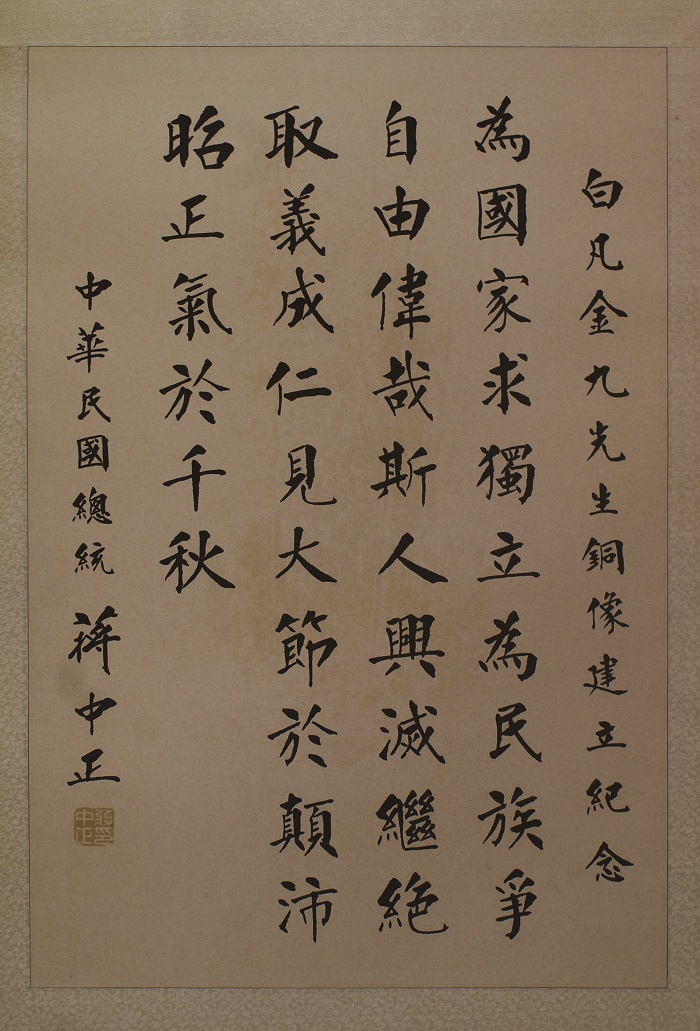 白凡金九先生銅像建立紀念
為國家求獨立為民族爭
自由偉哉斯人興滅繼絕
取義成仁見大節於顛沛
昭正氣於千秋
中華民國總統蔣中正